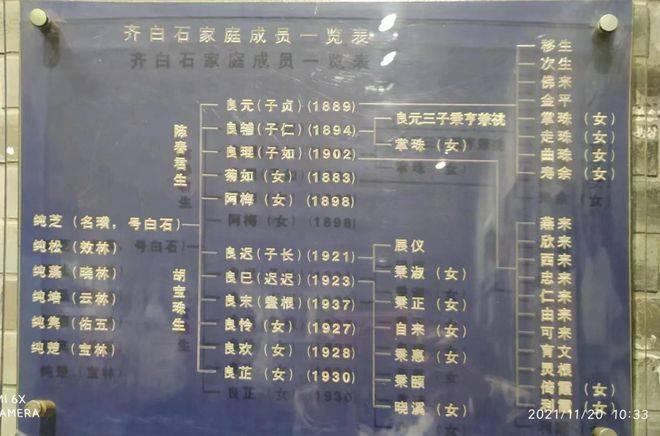 齐白石家庭成员一览表
陈春君生
良元(子贞)(1889)
良黼(子仁)(1894)
良琨(子如)(1902)
菊如(女)(1883)
阿梅(女)(1898)
良元三子秉亨兼祧
掌珠(女)
移生
次生
佛来
金平
掌珠(女)
走珠(女)
曲珠(女)
寿余(女)
燕来
欣来
西来
忠来
仁来
由来
可来
育文
灵根
倩霞(女)
纯芝(名璜,号白石)
纯松(效林)
纯藻(晓林)
纯培(云林)
纯隽(佑五)
纯楚(宝林)
胡宝珠生
良迟(子长)(1921)
良已(迟迟)(1923)
良末(耋根)(1937)
良怜(女)(1927)
良欢(女)(1928)
良芷(女)(1930)
展仪
秉淑(女)
秉正(女)
自来(女)
秉惠(女)
秉颐
晓溪(女)
MI 6X
CAMERA
2021/11/20 10:33